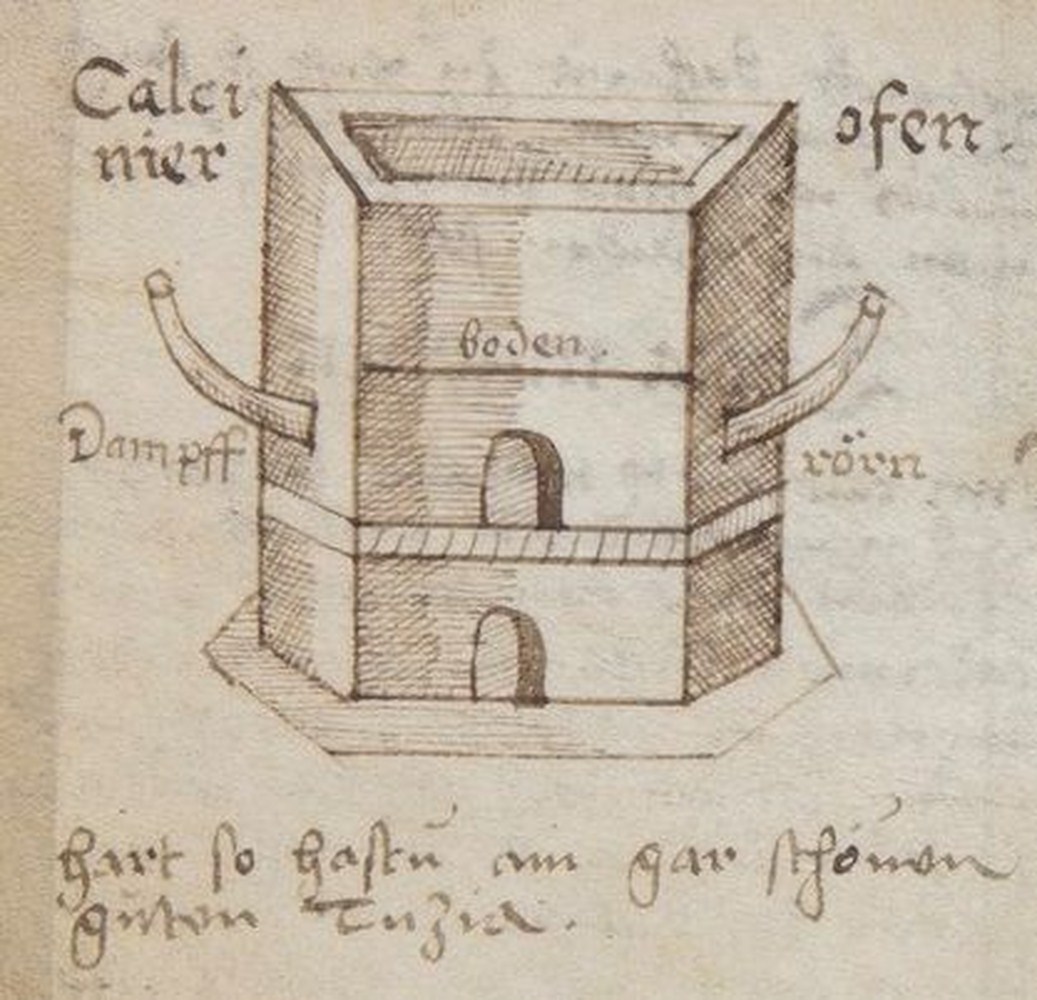 Calci
nier
ofen.
boden.
Dampff
rörn
hart so hastu ain gar schönen
guten Tuzia.